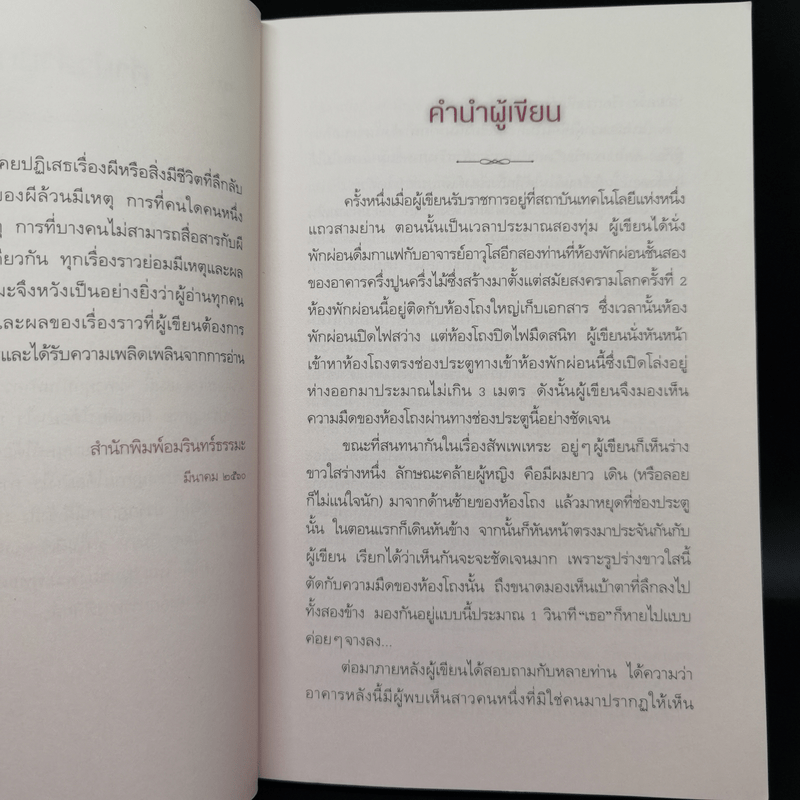 คยปฏิเสธเรื่องผีหรือสิ่งมีชีวิตที่ลึกลับ
ของผีล้วนมีเหตุ การที่คนใดคนหนึ่ง
การที่บางคนไม่สามารถสื่อสารกับผี
ดียวกัน ทุกเรื่องราวย่อมมีเหตุและผล
มะจึงหวังเป็นอย่างยิ่งว่าผู้อ่านทุกคน
และผลของเรื่องราวที่ผู้เขียนต้องการ
และได้รับความเพลิดเพลินจากการอ่าน
สำนักพิมพ์อมรินทร์ธรรมะ
มีนาคม ๒๕๖๐
คำนำผู้เขียน
ครั้งหนึ่งเมื่อผู้เขียนรับราชการอยู่ที่สถาบันเทคโนโลยีแห่งหนึ่ง
แถวสามย่าน ตอนนั้นเป็นเวลาประมาณสองทุ่ม ผู้เขียนได้นั่ง
พักผ่อนดื่มกาแฟกับอาจารย์อาวุโสอีกสองท่านที่ห้องพักผ่อนชั้นสอง
ของอาคารครึ่งปูนครึ่งไม้ซึ่งสร้างมาตั้งแต่สมัยสงครามโลกครั้งที่ 2
ห้องพักผ่อนนี้อยู่ติดกับห้องโถงใหญ่เก็บเอกสาร ซึ่งเวลานั้นห้อง
พักผ่อนเปิดไฟสว่าง แต่ห้องโถงปิดไฟมืดสนิท ผู้เขียนนั่งหันหน้า
เข้าหาห้องโถงตรงช่องประตูทางเข้าห้องพักผ่อนนี้ซึ่งเปิดโล่งอยู่
ห่างออกมาประมาณไม่เกิน 3 เมตร ดังนั้นผู้เขียนจึงมองเห็น
ความมืดของห้องโถงผ่านทางช่องประตูนี้อย่างชัดเจน
ขณะที่สนทนากันในเรื่องสัพเพเหระ อยู่ๆ ผู้เขียนก็เห็นร่าง
ขาวใสร่างหนึ่ง ลักษณะคล้ายผู้หญิง คือมีผมยาว เดิน (หรือลอย
ก็ไม่แน่ใจนัก) มาจากด้านซ้ายของห้องโถง แล้วมาหยุดที่ช่องประตู
นั้น ในตอนแรกก็เดินหันข้าง จากนั้นก็หันหน้าตรงมาประจันกันกับ
ผู้เขียน เรียกได้ว่าเห็นกันจะจะชัดเจนมาก เพราะรูปร่างขาวใสนี้
ตัดกับความมืดของห้องโถงนั้น ถึงขนาดมองเห็นเบ้าตาที่ลึกลงไป
ทั้งสองข้าง มองกันอยู่แบบนี้ประมาณ 1 วินาที "เธอ" ก็หายไปแบบ
ค่อยๆ จางลง...
ต่อมาภายหลังผู้เขียนได้สอบถามกับหลายท่าน ได้ความว่า
อาคารหลังนี้มีผู้พบเห็นสาวคนหนึ่งที่มิใช่คนมาปรากฏให้เห็น